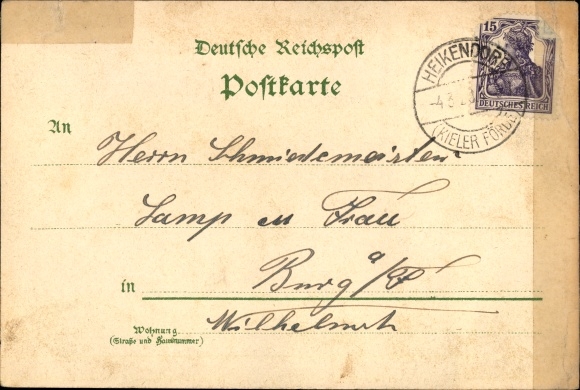 Deutsche Reichspost
Postkarte
15
DEUTSCHES REICH
HEIKENDORF
-4.3.
(KIELER FÖRDE)
An
Herrn Schmiedemeister
Lamp u Frau
in Burg a/F
Wilhelmstr
Wohnung
(Straße und Hausnummer)